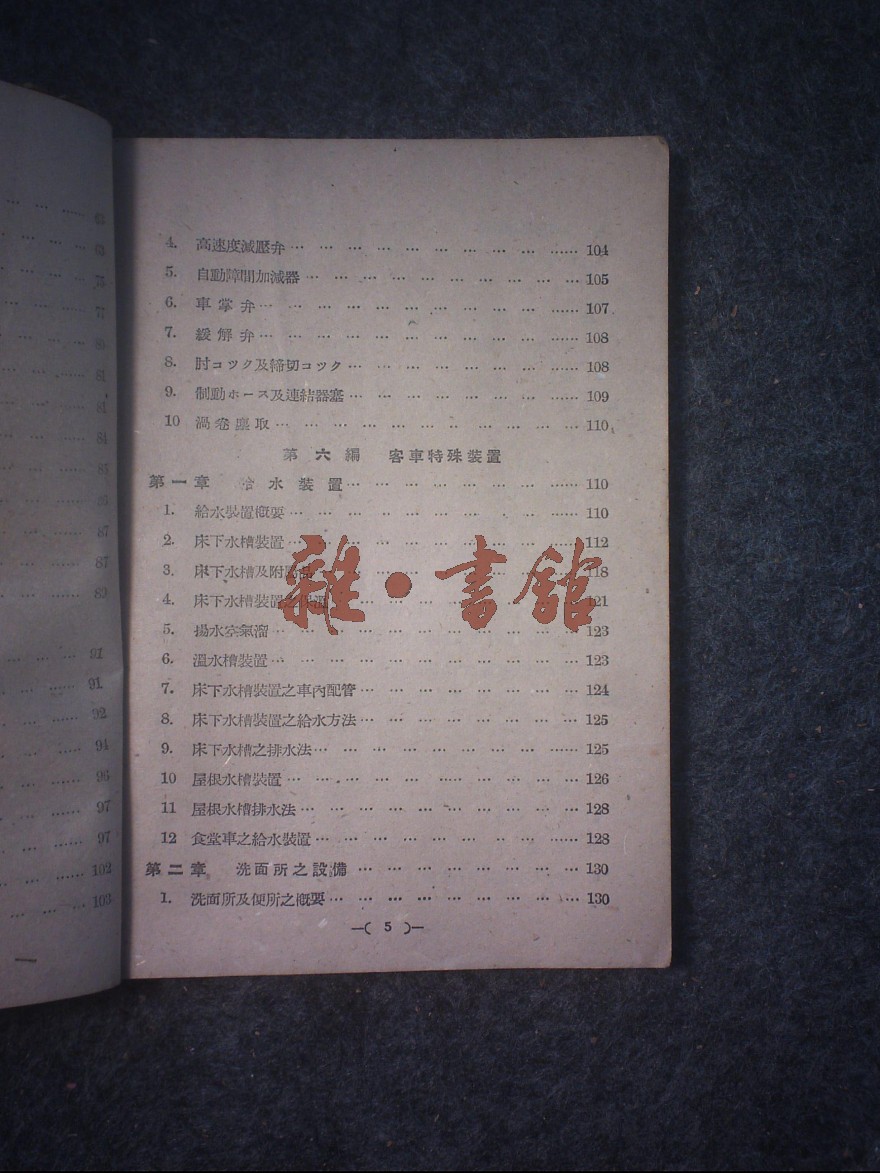 4. 高速度減壓弁 … … … … … … … … … …… 104
5. 自動障間加減器 … … … … … … … … … … 105
6. 車掌弁 … … … … … … … … … … …… 107
7. 緩解弁 … … … … … … … … … … …… 108
8. 肘コツク及締切コツク … … … … … … … … 108
9. 制動ホース及連結器塞 … … … … … … … … 109
10 渦卷塵取 … … … … … … … … … … … 110
第六編 客車特殊裝置
第一章 給水裝置 … … … … … … … … …… 110
1. 給水裝置概要 … … … … … … … … … …… 110
2. 床下水槽裝置 … … … … … … … … … …… 112
3. 床下水槽及附屬品 … … … … … … … … …… 118
4. 床下水槽裝置之保溫 … … … … … … … … … 121
5. 揚水空氣溜 … … … … … … … … … … … 123
6. 溫水槽裝置 … … … … … … … … … … … 123
7. 床下水槽裝置之車內配管 … … … … … … … … 124
8. 床下水槽裝置之給水方法 … … … … … … … … 125
9. 床下水槽之排水法 … … … … … … … … …… 125
10 屋根水槽裝置 … … … … … … … … … … … 126
11 屋根水槽排水法 … … … … … … … … … … 128
12 食堂車之給水裝置 … … … … … … … … …… 128
第二章 洗面所之設備 … … … … … … … … 130
1. 洗面所及便所之概要 … … … … … … … … … 130
—( 5 )—
雜·書館
63
73
75
77
80
81
81
84
85
86
87
87
89
91
91
92
94
96
97
97
102
103